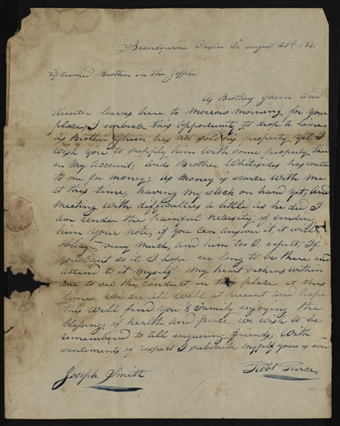 Brandywine Chester Co. august 25th 1841
Esteemed Brother in the gospel
As Brother Green and
Hunter leaves here to Morrow Morning for your
place, I embrace this opportunity to drop a line
as Brother Green has not sold his property yet I
wish you to supply him with some property there
on My account; and Brother Whitesides has written
to me for money; as Money is scarce with me
at this time having My stock on hand yet, and
Meeting with difficulties a little as he did I
am under the painful necessity of sending
him your Note, if you can answer it, it will
oblige very Much, and him too I expect, If
you cant do it I hope ere long to be there and
attend to it Myself. My heart sickens within
me to see the conduct in the place at this
time. We are all well at present and hope
this will find you & Family enjoying the
blessings of health and peace we wish to be
remembered to all enquiring friends, With
sentiments of respect I subscribe Myself yours
Joseph Smith
Robt Pierce